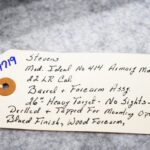 719
Stevens
Mod. Ideal No 414 Armory Mod
22 LR Cal.
Barrel + Forearm Assy.
26" Heavy Target - No Sights -
Drilled + Tapped For Mounting
Blued Finish, Wood Forearm,